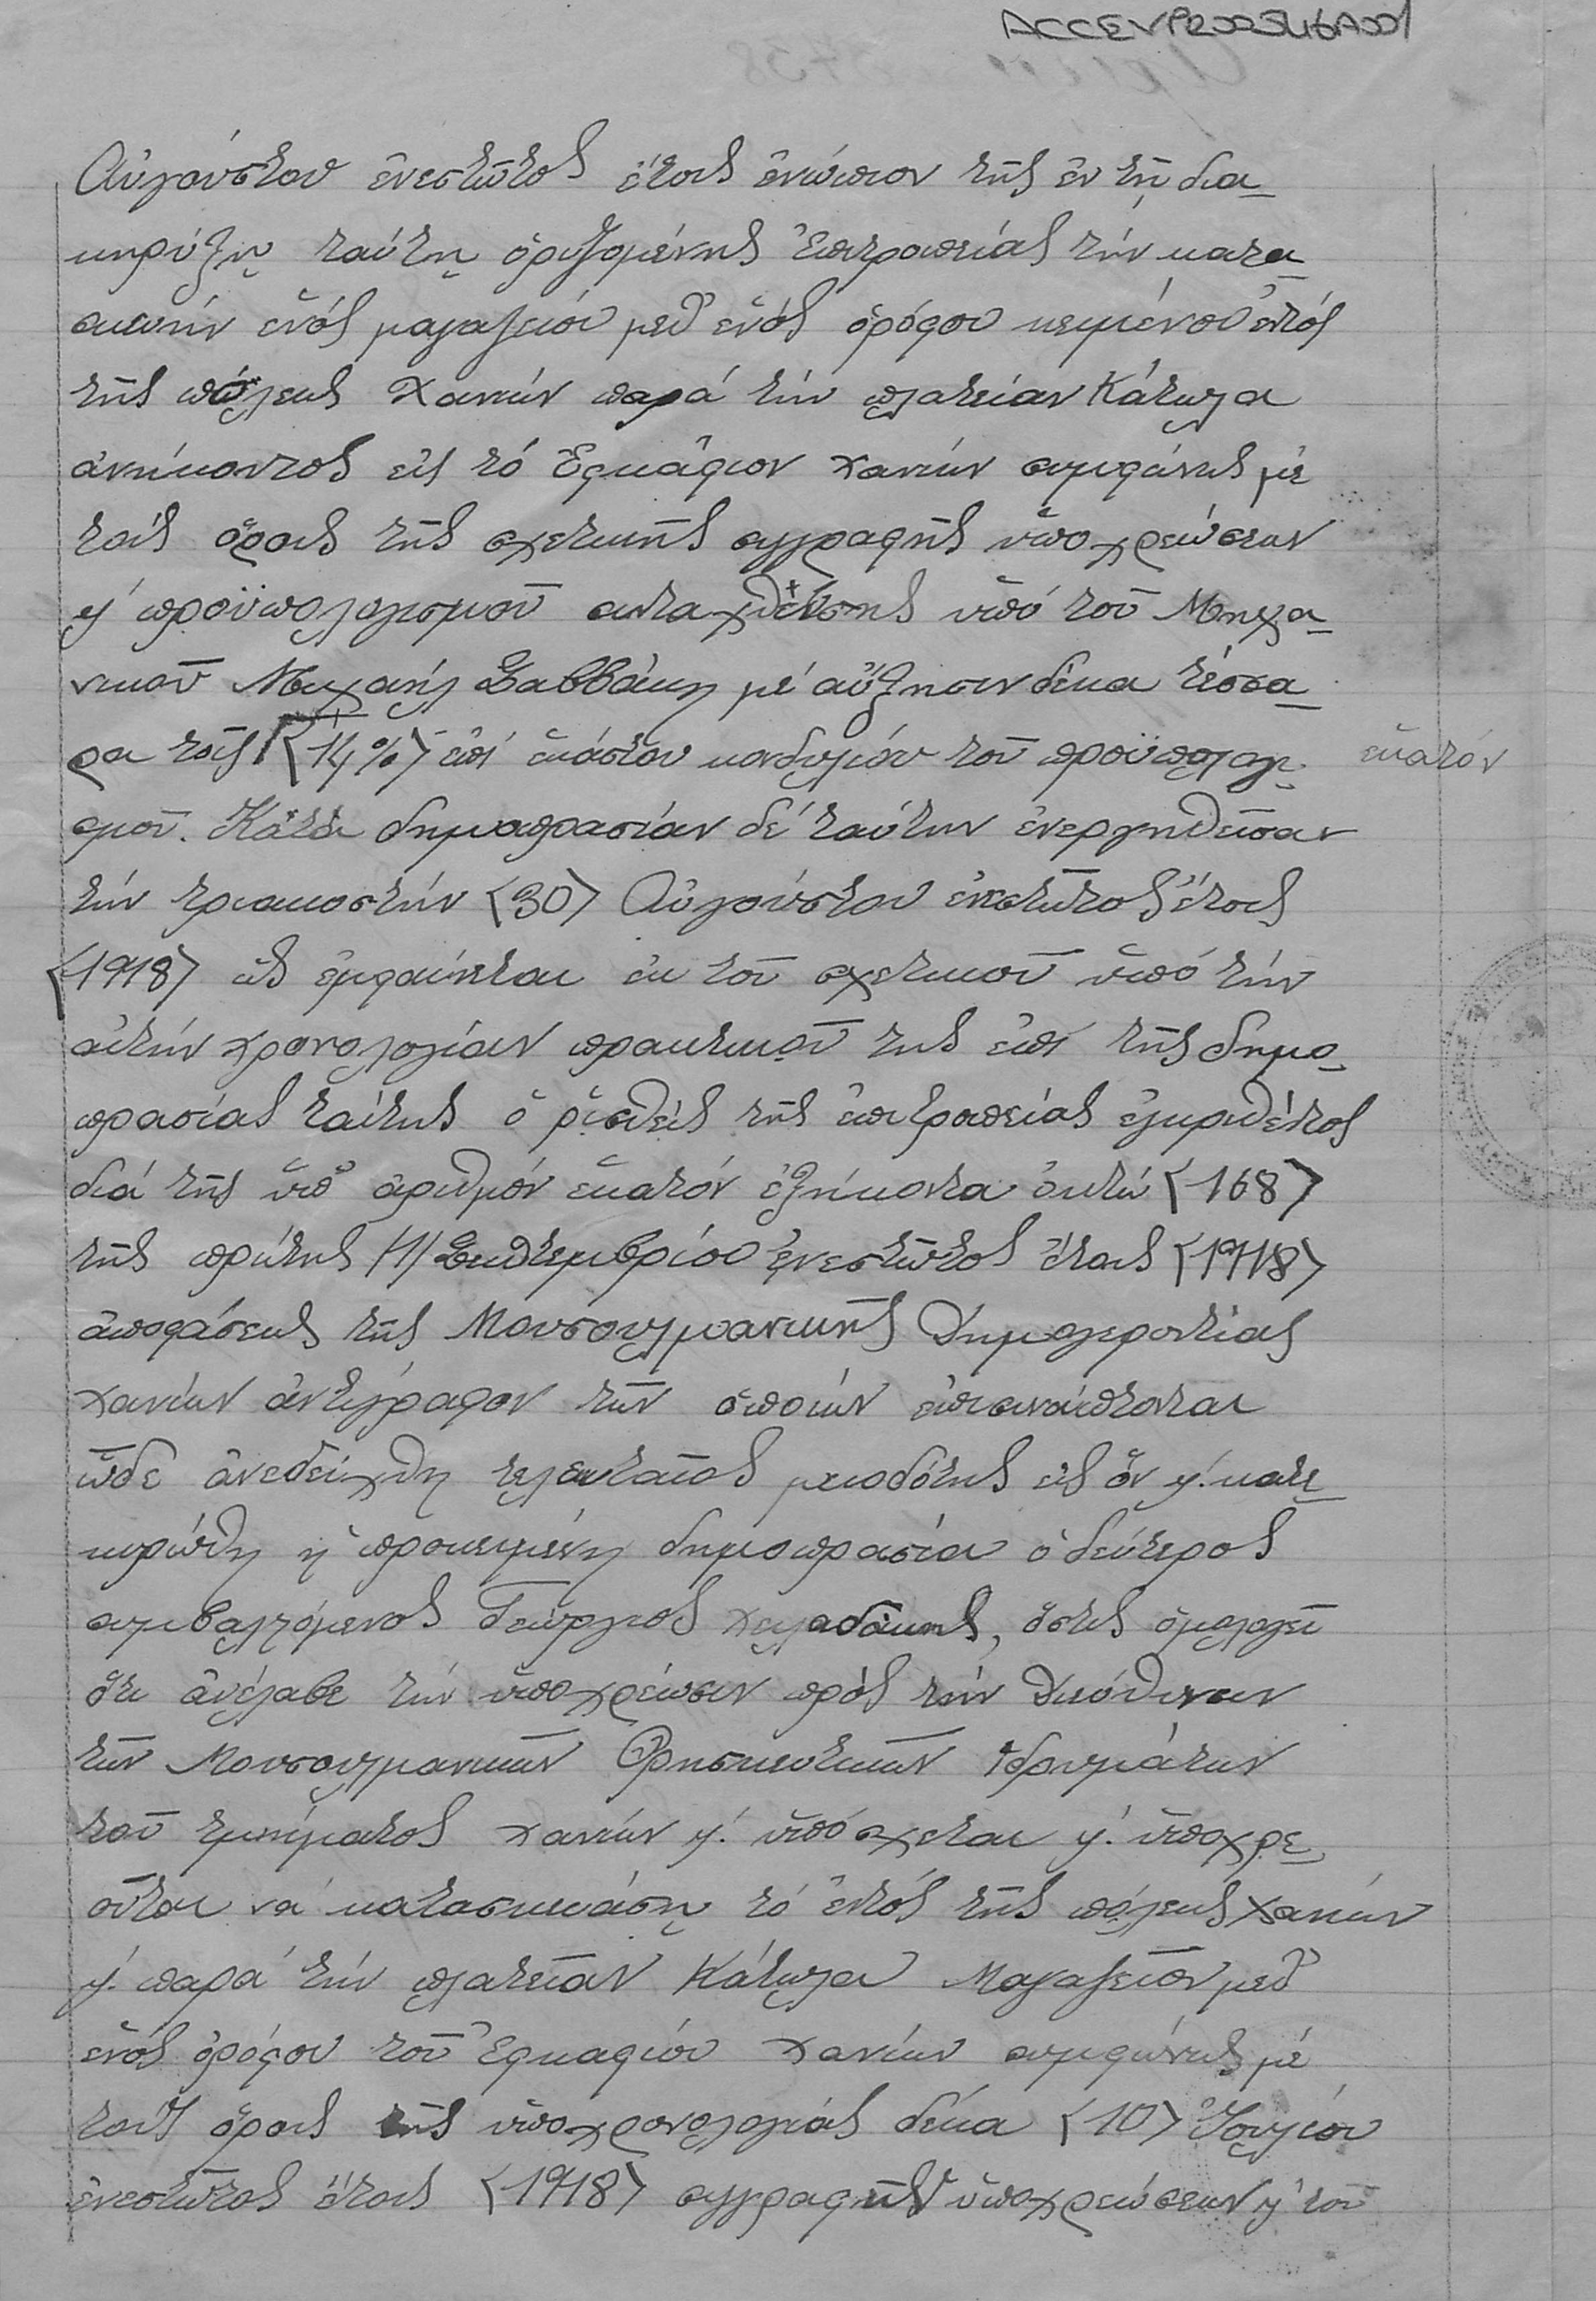 ACCEVPR002346A001
Αὐγούστου ἐνεστῶτος ἔτους ἐνώπιον τῆς ἐν τῇ δια
κηρύξῃ ταύτῃ ὁριζομένης Ἐπιτροπείας τήν κατα
σκευήν ἑνός μαγαζείου μεθ' ἑνός ὀρόφου κειμένου ἐντός
τῆς πόλεως Χανίων παρά τήν πλατείαν Κάτωλα
ἀνήκοντος εἰς τό Ἐφκάφιον Χανίων συμφώνως μέ
τούς ὅρους τῆς σχετικῆς συγγραφῆς ὑποχρεώσεων
ϗ προϋπολογισμοῦ συνταχθείσης ὑπό τοῦ Μηχα
νικοῦ Μιχαήλ Σαββάκη μέ αὔξησιν δέκα τέσσα
ρα τοῖς (14%) ἐπί ἑκάστου κονδυλίου τοῦ προϋπολογι ἑκατόν
σμοῦ. Κατά δημοπρασίαν δέ ταύτην ἐνεργηθεῖσαν
τήν τριακοστήν (30) Αὐγούστου ἐνεστῶτος ἔτους
(1918) ὡς ἐμφαίνεται ἐκ τοῦ σχετικοῦ ὑπό τήν
αὐτήν χρονολογίαν πρακτικοῦ τῆς ἐπί τῆς δημο
πρασίας ταύτης ὁρισθείς τῆς ἐπιτροπείας ἐγκριθέντος
διά τῆς ὑπ' ἀριθμόν ἑκατόν ἑξήκοντα ὀκτώ (168)
τῆς πρώτης /1/ Σεπτεμβρίου ἐνεστῶτος ἔτους (1918)
ἀποφάσεως τῆς Μουσουλμανικῆς Δημογεροντίας
Χανίων ἀντίγραφον τῶν ὁποίων ἐπισυνάπτονται
ὧδε ἀνεδείχθη τελευταῖος μειοδότης εἰς ὅν ϗ. κατε
κυρώθη ἡ προκειμένη δημοπρασία ὁ δεύτερος
συμβαλλόμενος Γεώργιος Χελαδάκης, ὅστις ὁμολογεῖ
ὅτι ἀνέλαβε τήν ὑποχρέωσιν πρός τήν Διεύθυνσιν
τῶν Μουσουλμανικῶν Θρησκευτικῶν Ἱδρυμάτων
τοῦ τμήματος Χανίων ϗ. ὑπόσχεται ϗ. ὑποχρε
οῦται νά κατασκευάσῃ τό ἐντός τῆς πόλεως Χανίων
ϗ. παρά τήν πλατείαν Κάτωλα Μαγαζεῖον μεθ'
ἑνός ὀρόφου τοῦ Ἐφκαφίου Χανίων συμφώνως μέ
τούς ὅρους τῆς ὑπο χρονολογίας δέκα (10) Ἰουλίου
ἐνεστῶτος ἔτους (1918) συγγραφῆς ὑποχρεώσεων ϗ τοῦ